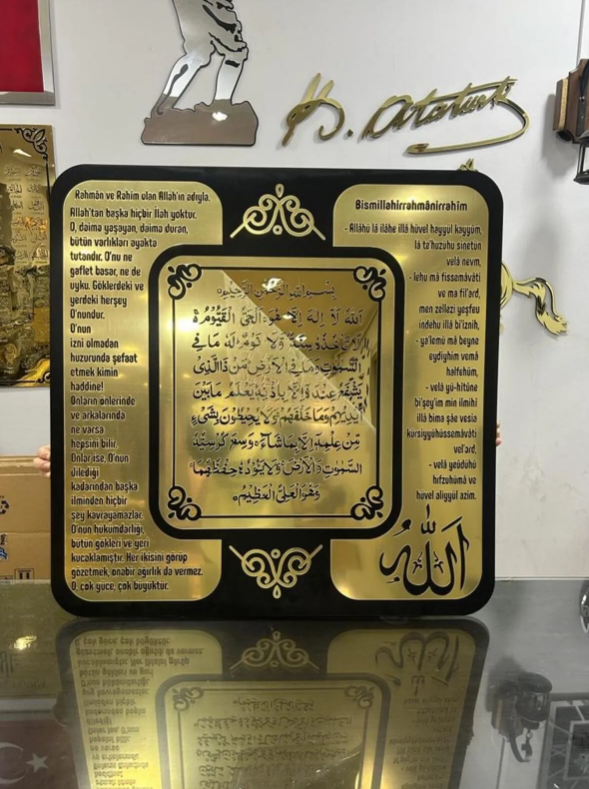 K. Atatürk
Rahmân ve Rahim olan Allah'ın adıyla.
Allah'tan başka hiçbir ilah yoktur.
O, daima yaşayan, daima duran,
bütün varlıkları ayakta
tutandır. O'nu ne
gaflet basar, ne de
uyku. Göklerdeki ve
yerdeki herşey
O'nundur.
O'nun
izni olmadan
huzurunda şefaat
etmek kimin
haddine!
Onların önlerinde
ve arkalarında
ne varsa
hepsini bilir.
Onlar ise, O'nun
dilediği
kadarından başka
ilminden hiçbir
şey kavrayamazlar.
O'nun hükümdarlığı,
bütün gökleri ve yeri
kucaklamıştır. Her ikisini görüp
gözetmek, ona bir ağırlık da vermez.
O, çok yüce, çok büyüktür.
بِسْمِ اللهِ الرَّحْمٰنِ الرَّحِيمِ
اَللهُ لَا اِلٰهَ اِلَّا هُوَ اَلْحَيُّ الْقَيُّومُ
لَا تَأْخُذُهُ سِنَةٌ وَلَا نَوْمٌ لَهُ مَا فِي
السَّمٰوَاتِ وَمَا فِي الْاَرْضِ مَنْ ذَا الَّذِي
يَشْفَعُ عِنْدَهُ اِلَّا بِاِذْنِهِ يَعْلَمُ مَا بَيْنَ
اَيْدِيهِمْ وَمَا خَلْفَهُمْ وَلَا يُحِيطُونَ بِشَيْءٍ
مِنْ عِلْمِهِ اِلَّا بِمَا شَاءَ وَسِعَ كُرْسِيُّهُ
السَّمٰوَاتِ وَالْاَرْضَ وَلَا يَؤُدُهُ حِفْظُهُمَا
وَهُوَ الْعَلِيُّ الْعَظِيمُ
Bismillahirrahmânirrahîm
- Allâhü lâ ilâhe illâ hüvel hayyül kayyûm,
lâ te'huzuhu sinetün
velâ nevm,
- lehu mâ fissemâvâti
ve ma fil'ard,
men zellezi yeşfeu
indehu illâ bi'iznih,
- ya'lemü mâ beyne
eydiyhim vemâ
halfehüm,
- velâ yü-hîtûne
bi'şey'im min ilmihî
illâ bima şâe vesia
kürsiyyühüssemâvâti
vel'ard,
- velâ yeûdühû
hıfzuhümâ ve
hüvel aliyyül azim.
اَللّٰهُ